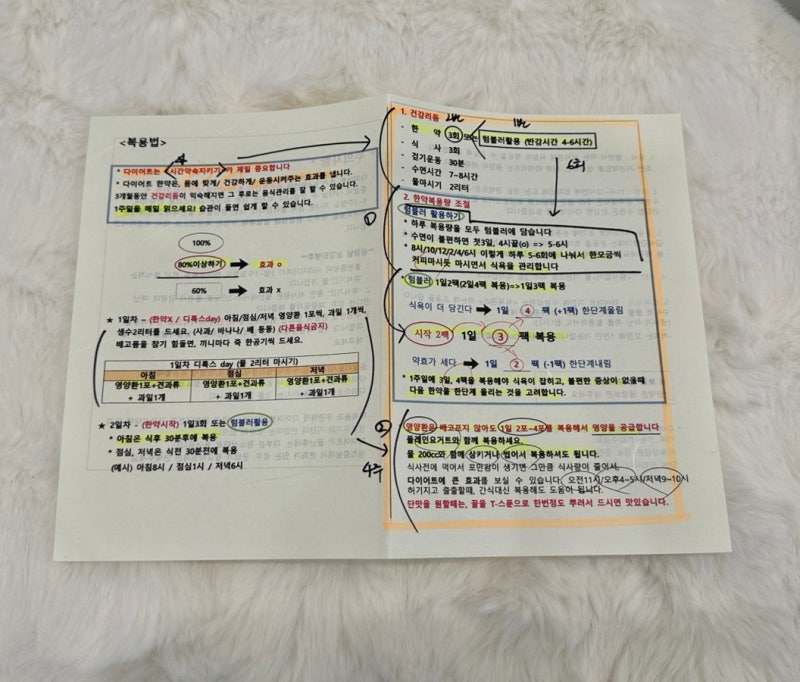 <복용법>
* 다이어트는 (시간약속지키기)가 제일 중요합니다
* 다이어트 한약은, 몸에 맞게/ 건강하게/ 운동시켜주는 효과를 냅니다.
3개월동안 건강리듬이 익숙해지면 그 후로는 음식관리를 잘 할 수 있습니다.
1주일을 매일 읽으세요! 습관이 들면 쉽게 할 수 있습니다.
①
100%
80%이상하기 ➡ 효과 o
60% ➡ 효과 x
★ 1일차 - (한약X / 디톡스day) 아침/점심/저녁 영양환 1포씩, 과일 1개씩,
생수2리터를 드세요. (사과/ 바나나/ 배 등등) (다른음식금지)
배고픔을 참기 힘들면, 끼니마다 죽 한공기씩 드세요.
1일차 디톡스 day (물 2리터 마시기)
아침 점심 저녁
영양환1포+견과류 영양환1포+견과류 영양환1포+견과류
+ 과일1개 + 과일1개 + 과일1개
★ 2일차 - (한약시작) 1일3회 또는 텀블러활용
* 아침은 식후 30분후에 복용
* 점심, 저녁은 식전 30분전에 복용
(예시) 아침8시 / 점심1시 / 저녁6시
4주
1. 건강리듬
- 한 약 3회 또는 텀블러활용 (반감시간 4-6시간)
- 식 사 3회
- 걷기운동 30분
- 수면시간 7-8시간
- 물마시기 2리터
6회
2. 한약복용량 조절
텀블러 활용하기
* 하루 복용량을 모두 텀블러에 담습니다
* 수면이 불편하면 첫3일, 4시끝(o) => 5-6시
* 8시/10/12/2/4/6시 이렇게 하루 5-6회에 나눠서 한모금씩
커피마시듯 마시면서 식욕을 관리합니다
* 텀블러 1일2팩(2일4팩 복용)=>1일3팩 복용
식욕이 더 당긴다 ➡ 1일 4 팩 (+1팩) 한단계올림
시작 2팩 1일 3 팩 복용
약효가 세다 ➡ 1일 2 팩 (-1팩) 한단계내림
* 1주일에 3일, 4팩을 복용해야 식욕이 잡히고, 불편한 증상이 없을때
다음 한약을 한단계 올리는 것을 고려합니다.
②
영양환은 배고프지 않아도 1일 2포~4포를 복용해서 영양을 공급합니다
플레인요거트와 함께 복용하세요.
물 200cc와 함께 삼키거나 씹어서 복용하셔도 됩니다.
식사전에 먹어서 포만감이 생기면 그만큼 식사량이 줄어서,
다이어트에 큰 효과를 보실 수 있습니다. 오전11시/오후4~5시/저녁9~10시
허기지고 출출할때, 간식대신 복용해도 도움이 됩니다.
단맛을 원할때는, 꿀을 T-스푼으로 한번정도 뿌려서 드시면 맛있습니다.